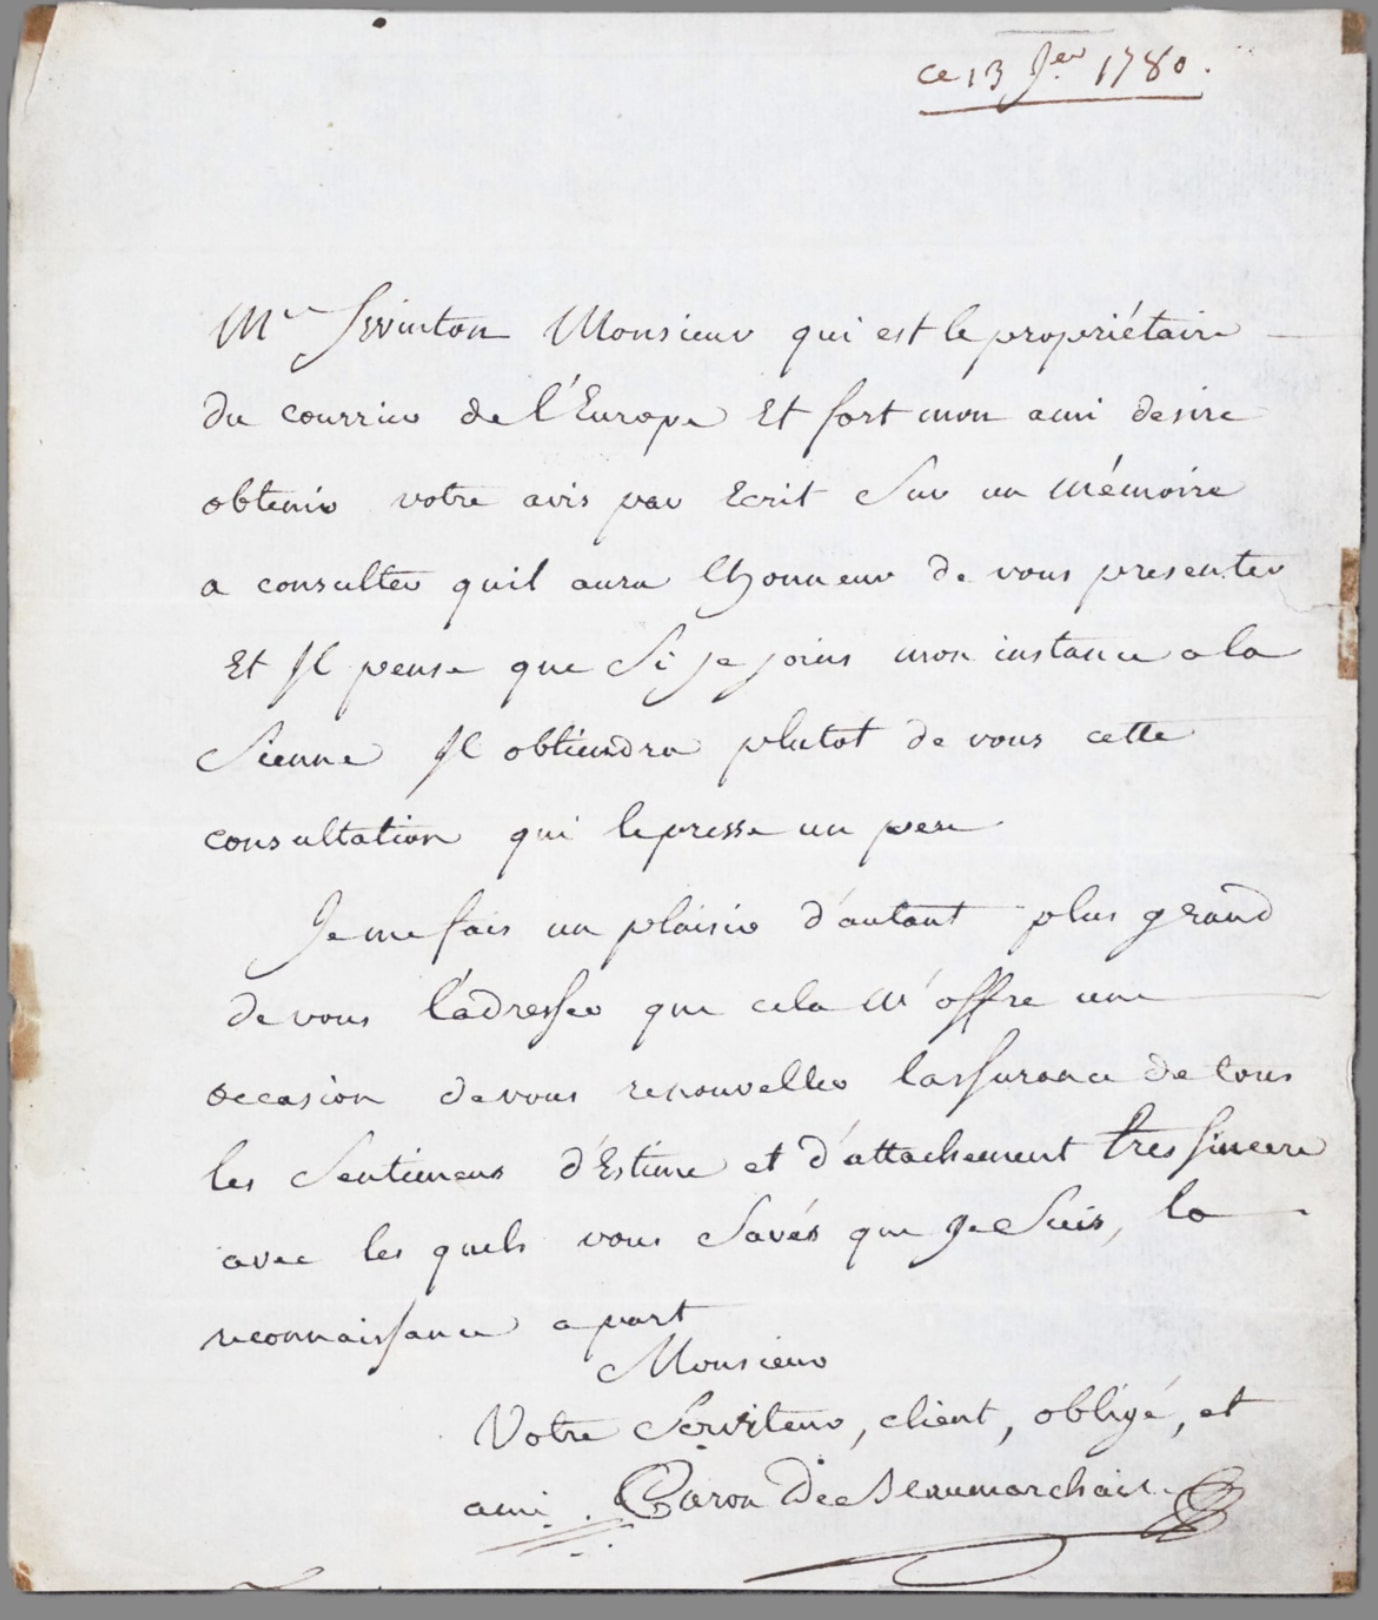 ce 13 Jer 1780.
Mr Swinton Monsieur qui est le propriétaire
du courrier de l'Europe Et fort mon ami desire
obtenir votre avis par Ecrit Sur un mémoire
a consulter quil aura lhonneur de vous presenter
Et Il pense que Si je joins mon instance a la
Sienne Il obtiendra plutot de vous cette
consultation qui le presse un peu
Je me fais un plaisir d'autant plus grand
de vous l'adresser que cela m'offre une
occasion de vous renouveller lassurance de tous
les Sentimens d'Estime et d'attachement tres sincere
avec les quels vous Savés que Je Suis, la
reconnaissance a part
Monsieur
Votre Serviteur, client, obligé, et
ami. Caron De Beaumarchais.